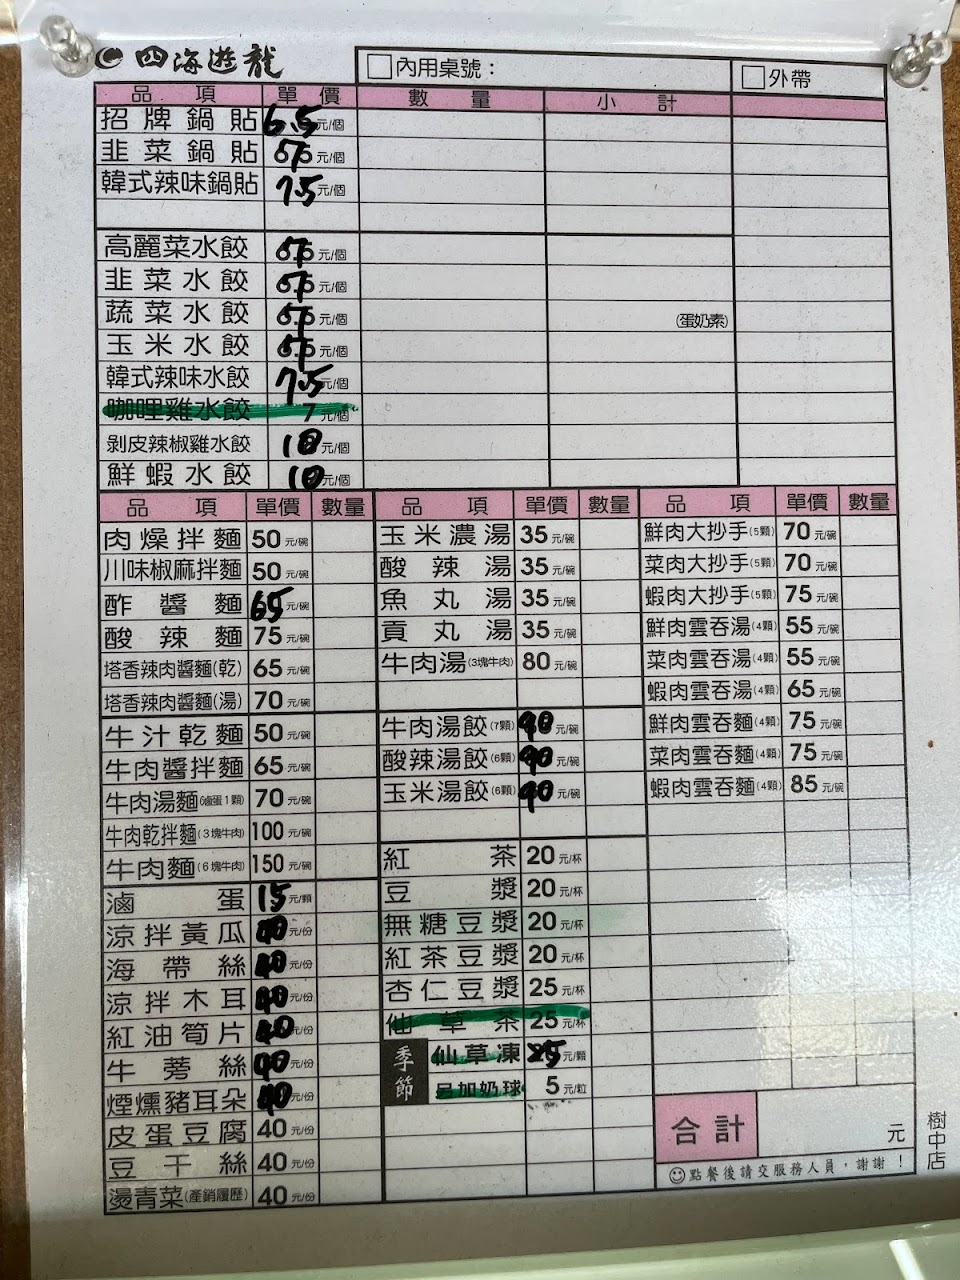 四海遊龍
內用桌號： 外帶
品項 單價 數量 小計
招牌鍋貼 6.5元/個
韭菜鍋貼 元/個
韓式辣味鍋貼 7.5元/個
高麗菜水餃 元/個
韭菜水餃 元/個
蔬菜水餃 元/個 (蛋奶素)
玉米水餃 元/個
韓式辣味水餃 7.5元/個
咖哩雞水餃 7元/個
剝皮辣椒雞水餃 10元/個
鮮蝦水餃 10元/個
品項 單價 數量
肉燥拌麵 50元/碗
川味椒麻拌麵 50元/碗
酢醬麵 65元/碗
酸辣麵 75元/碗
塔香辣肉醬麵(乾) 65元/碗
塔香辣肉醬麵(湯) 70元/碗
牛汁乾麵 50元/碗
牛肉醬拌麵 65元/碗
牛肉湯麵(滷蛋1顆) 70元/碗
牛肉乾拌麵(3塊牛肉) 100元/碗
牛肉麵(6塊牛肉) 150元/碗
滷蛋 15元/顆
涼拌黃瓜 40元/份
海帶絲 40元/份
涼拌木耳 40元/份
紅油筍片 40元/份
牛蒡絲 40元/份
煙燻豬耳朵 40元/份
皮蛋豆腐 40元/份
豆干絲 40元/份
燙青菜(產銷履歷) 40元/份
品項 單價 數量
玉米濃湯 35元/碗
酸辣湯 35元/碗
魚丸湯 35元/碗
貢丸湯 35元/碗
牛肉湯(3塊牛肉) 80元/碗
牛肉湯餃(7顆) 90元/碗
酸辣湯餃(6顆) 90元/碗
玉米湯餃(6顆) 90元/碗
紅茶 20元/杯
豆漿 20元/杯
無糖豆漿 20元/杯
紅茶豆漿 20元/杯
杏仁豆漿 25元/杯
仙草茶 25元/杯
季節
仙草凍 25元/顆
另加奶球 5元/粒
品項 單價 數量
鮮肉大抄手(5顆) 70元/碗
菜肉大抄手(5顆) 70元/碗
蝦肉大抄手(5顆) 75元/碗
鮮肉雲吞湯(4顆) 55元/碗
菜肉雲吞湯(4顆) 55元/碗
蝦肉雲吞湯(4顆) 65元/碗
鮮肉雲吞麵(4顆) 75元/碗
菜肉雲吞麵(4顆) 75元/碗
蝦肉雲吞麵(4顆) 85元/碗
合計 元
點餐後請交服務人員，謝謝！
樹中店